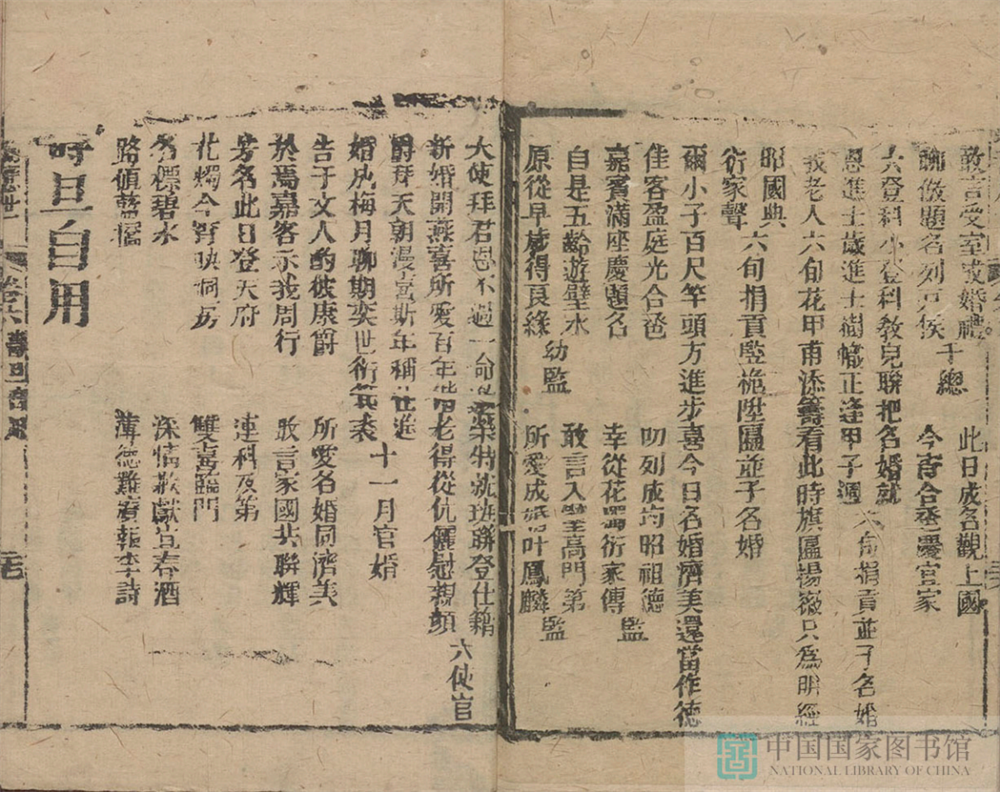 敢言受室或婚禮　此日成名觀上國
聊傚題名列只侯　今宵合卺慶官家
千總
大登科小登科教兒聯把名婚就
恩進士歲進士樹幟正逢甲子週
六旬捐貢並子名婚
我老人六旬花甲甫添籌看此時旗匾揚徽只為明經
昭國典
六旬捐貢監桅陞匾並子名婚
衍家聲
爾小子百尺竿頭方進步喜今日名婚濟美還當作德
佳客盈庭光合卺　叨列成均昭祖德
嘉賓滿座慶題名　幸從花燭衍家傳
監
自是五齡遊壁水　敢言入璧高門第
原從早歲得良緣　所愛成婚叶鳳麟
幼監
監
大使拜君恩不過一命
特就班聯登仕籍
新婚開燕喜所愛百年偕老得從伉儷慰親顏
六使官
爵拜天朝漫言斯年稱仕進
婚成梅月聊期奕世衍箕裘
十一月官婚
告于文人酌彼康爵　所愛名婚同濟美
於焉嘉客示我周行　敢言家國共聯輝
芳名此日登天府　連科及第
花燭今宵映洞房　雙喜臨門
名標碧水　深情歌獻豈春酒
路値藍橋　薄德難賡報李詩
時旦自用
卷六
時旦自用
中国国家图书馆
NATIONAL LIBRARY OF CHINA